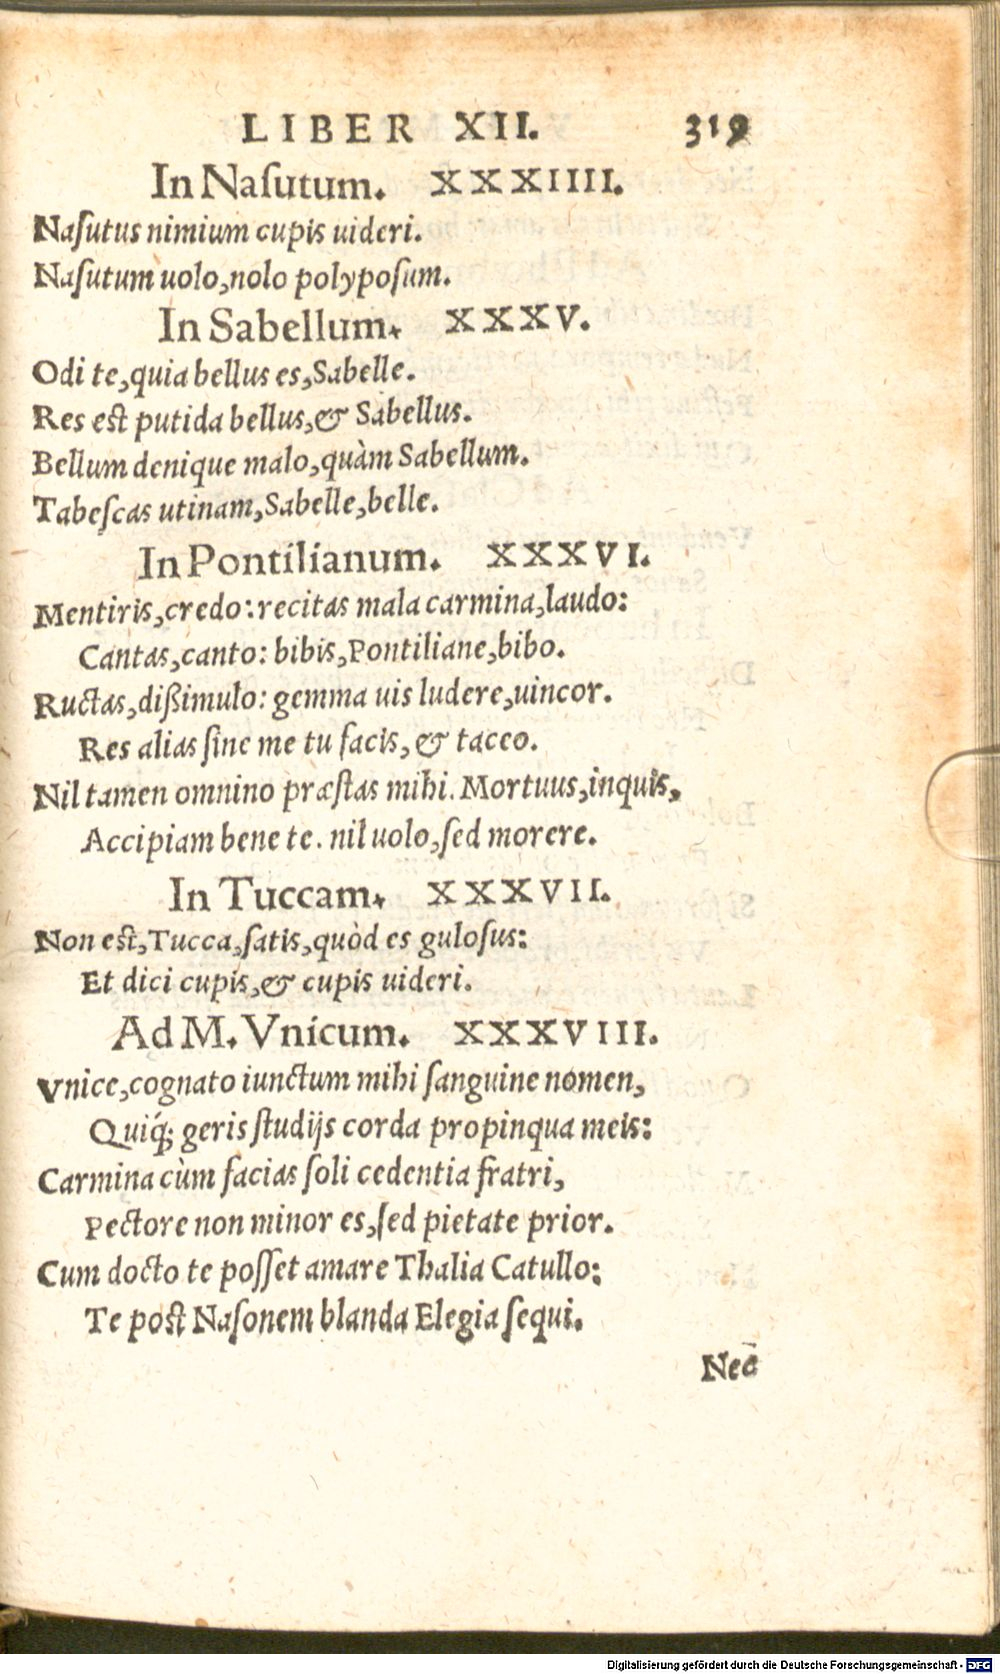 LIBER XII. 319
In Naſutum. XXXIIII.
Naſutus nimium cupis uideri.
Naſutum uolo, nolo polypoſum.
In Sabellum. XXXV.
Odi te, quia bellus es, Sabelle.
Res est putida bellus, & Sabellus.
Bellum denique malo, quàm Sabellum.
Tabeſcas utinam, Sabelle, belle.
In Pontilianum. XXXVI.
Mentiris, credo: recitas mala carmina, laudo:
Cantas, canto: bibis, Pontiliane, bibo.
Ructas, dißimulo: gemma uis ludere, uincor.
Res alias ſine me tu facis, & taceo.
Nil tamen omnino præſtas mihi. Mortuus, inquis,
Accipiam bene te. nil uolo, ſed morere.
In Tuccam. XXXVII.
Non est, Tucca, ſatis, quòd es guloſus:
Et dici cupis, & cupis uideri.
Ad M. Vnicum. XXXVIII.
Vnice, cognato iunctum mihi ſanguine nomen,
Quiq́; geris ſtudijs corda propinqua meis:
Carmina cùm facias ſoli cedentia fratri,
Pectore non minor es, ſed pietate prior.
Cum docto te poſſet amare Thalia Catullo:
Te post Naſonem blanda Elegia ſequi.
Nec
Digitalisierung gefördert durch die Deutsche Forschungsgemeinschaft - DFG